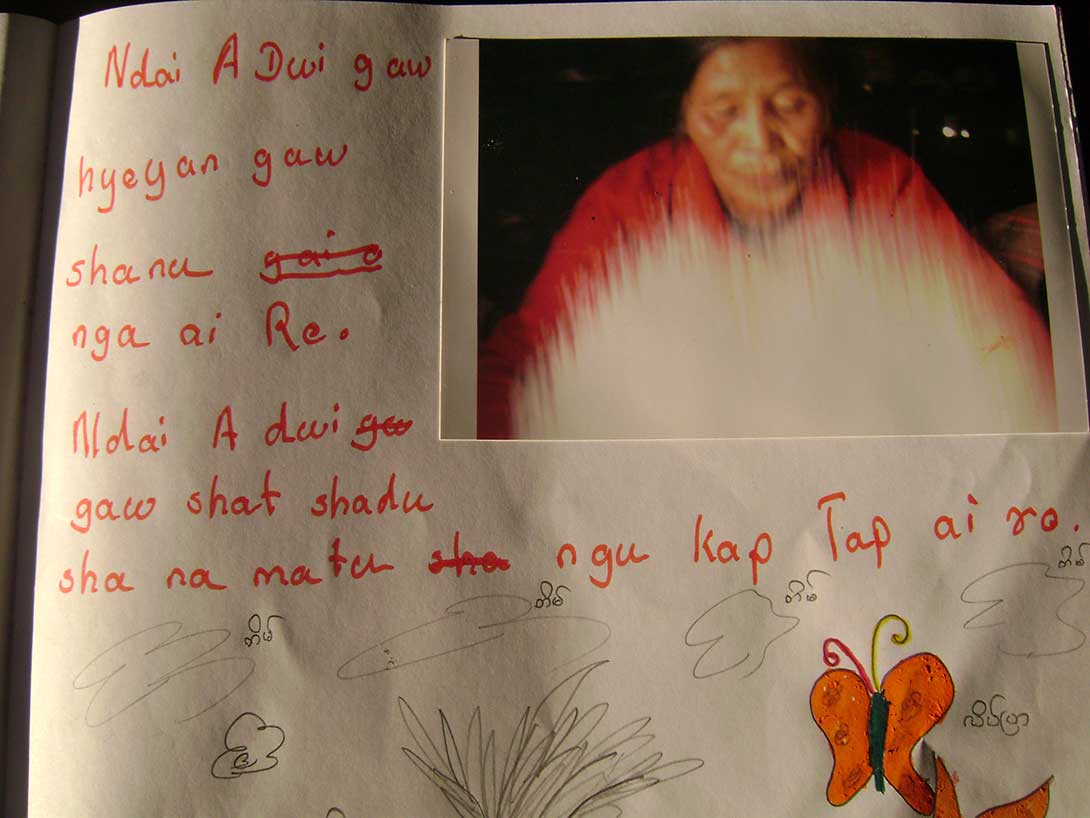 Ndai A Dwi gaw
hyeyan gaw
shanu gai o
nga ai Re.
Ndai A dwi gw
gaw shat shadu
sha na matu sha ngu kap Tap ai ro.
တိမ်
တိမ်
တိမ်
တိမ်
လိပ်ပြာ